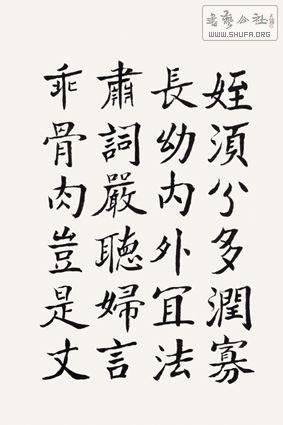 書藝公社
WWW.SHUFA.ORG
姪須分多潤寡
長幼内外冝法
肅詞嚴聽婦言
乖骨肉豈是丈